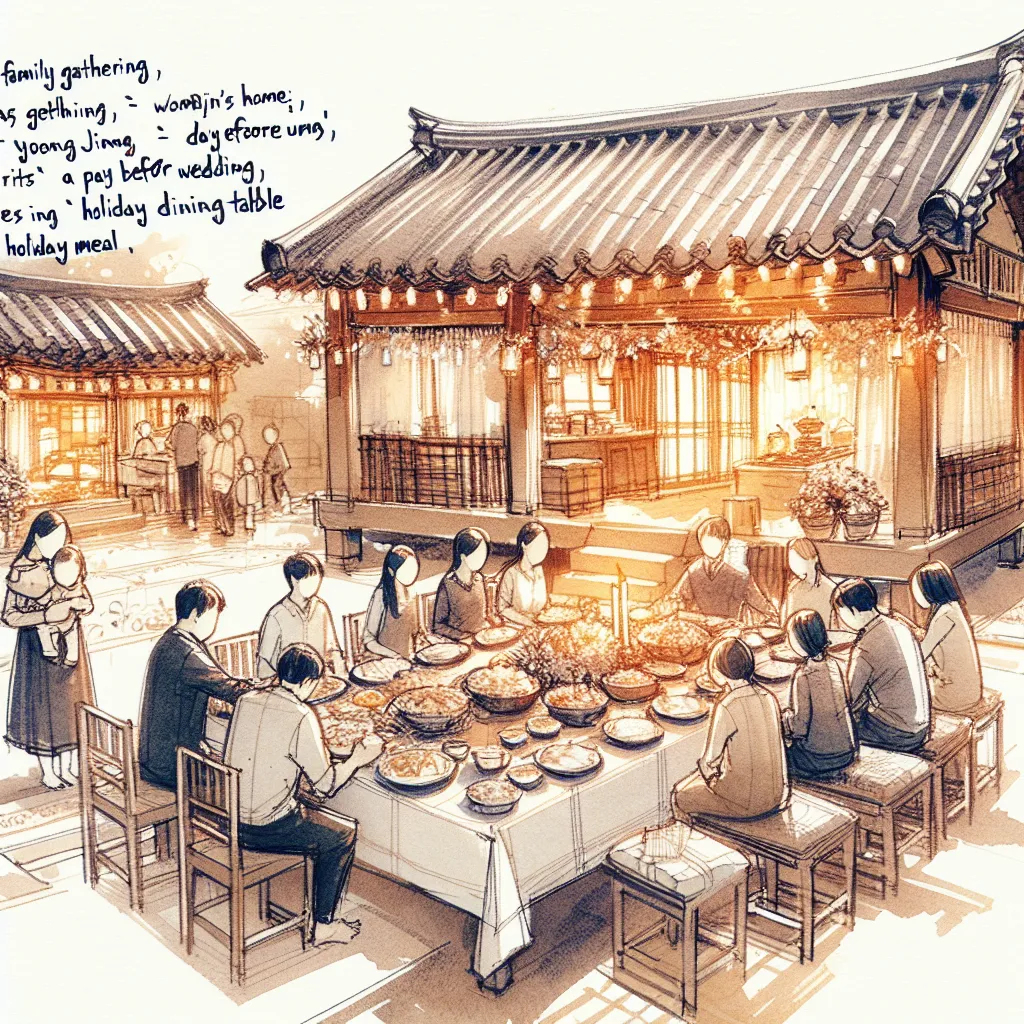 family gathering,
As gethiing, = womajn's home;,
yoong Jinng, = day efcore ung',
rits' a pay befor wedding,
es ing 'holiday dining tabble
holiday meal.